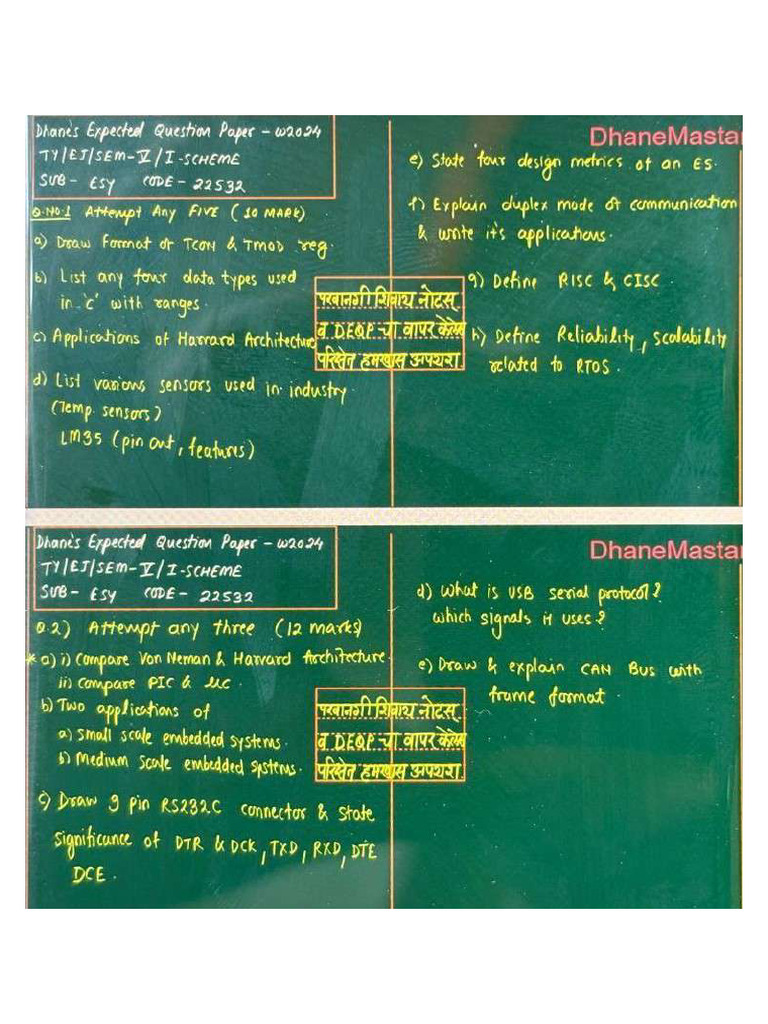 Dhane's Expected Question Paper - W2024
TY/EJ/SEM-V/I-SCHEME
SUB- ESY CODE- 22532
Q.NO.1 Attempt Any FIVE (10 MARK)
a) Draw Format of TCON & TMOD reg.
b) List any four data types used
in 'c' with ranges.
c) Applications of Harvard Architecture
d) List various sensors used in industry.
(Temp. sensors)
LM35 (pin out, features)
DhaneMastar
e) State four design metrics of an ES.
f) Explain duplex mode of communication
& write it's applications.
g) Define RISC & CISC.
h) Define Reliability, scalability
related to RTOS.
परवानगी शिवाय नोटस्
व DEQP चा वापर केलेस
परिक्षेत हमखास अपयश.
Dhane's Expected Question Paper - W2024
TY/EJ/SEM-V/I-SCHEME
SUB- ESY CODE- 22532
Q.2) Attempt any three (12 marks)
* a) i) Compare Von Neman & Harvard Architecture.
ii) Compare PIC & μC.
b) Two applications of
a) Small scale embedded systems.
b) Medium scale embedded systems.
c) Draw 9 pin RS232C connector & state
significance of DTR & DCK, TXD, RXD, DTE
DCE.
DhaneMastar
d) What is USB serial protocol?
which signals it uses?
e) Draw & explain CAN BUS with
frame format.
परवानगी शिवाय नोटस्
व DEQP चा वापर केलेस
परिक्षेत हमखास अपयश.